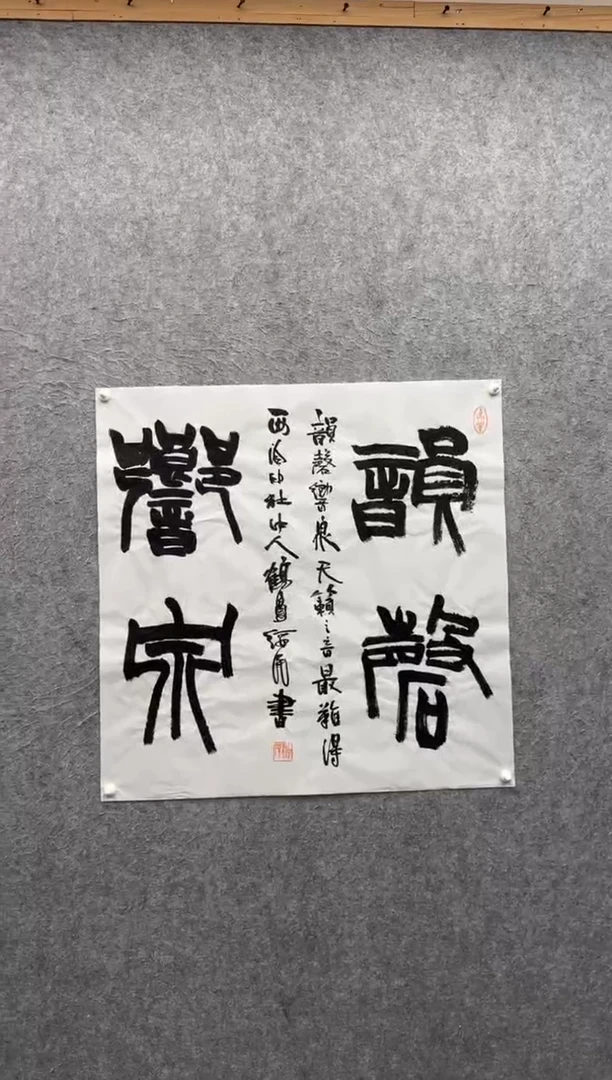 韻磬
韻磬響泉天籟之音最難得
西泠印社中人鶴
書
響泉